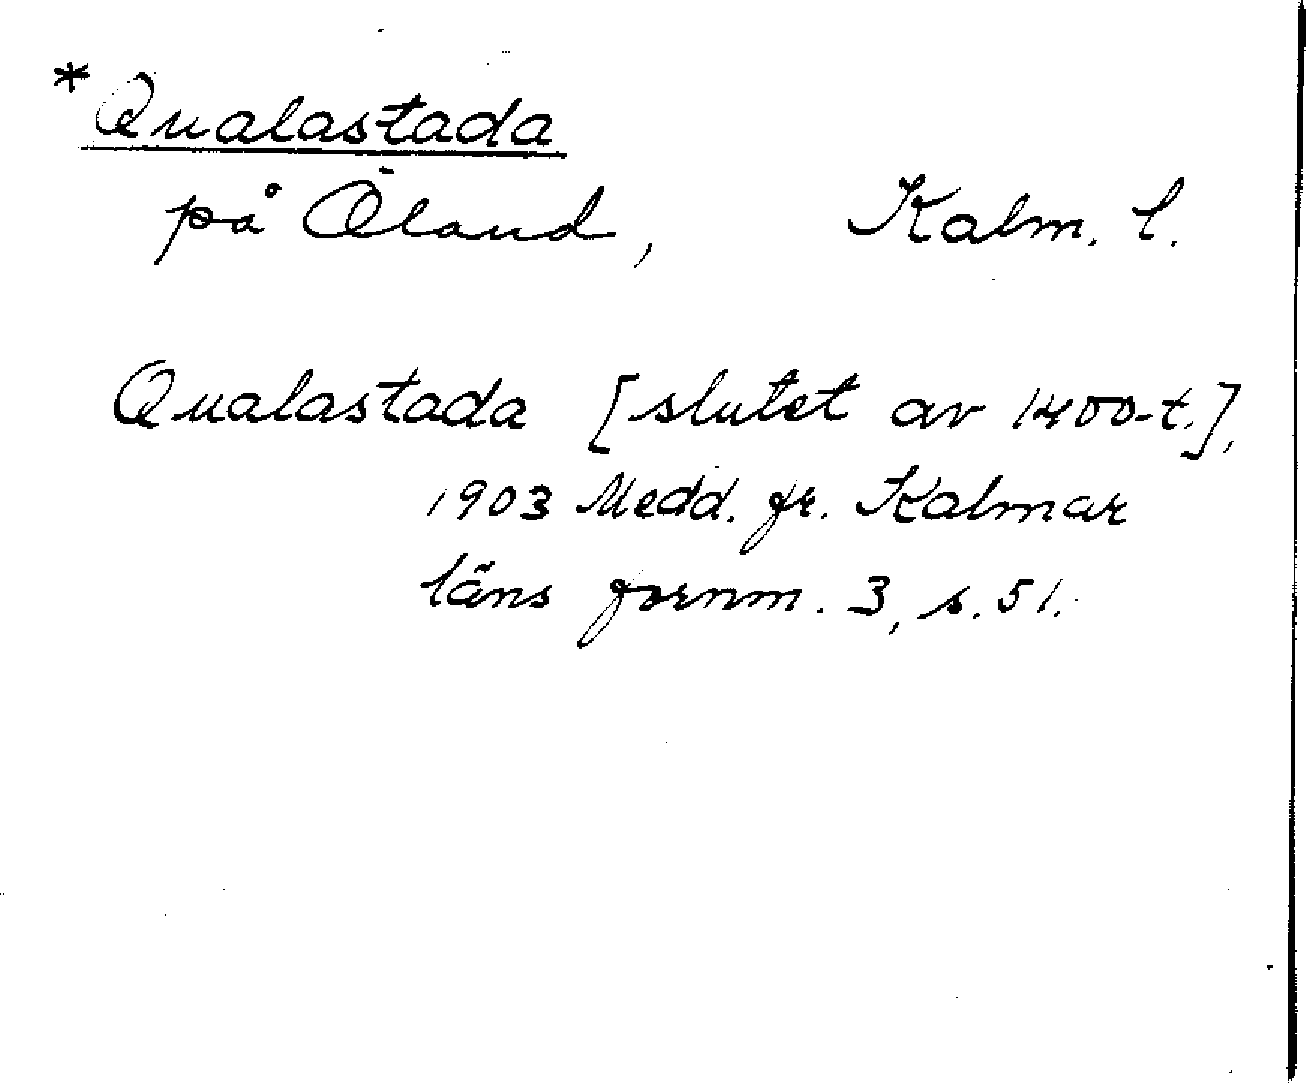 *Qualastada
på Öland, Kalm. l.
Qualastada [slutet av 1400-t.],
1903 Medd. fr. Kalmar
läns fornm. 3, s. 51.